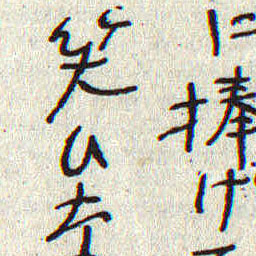 に捧げ
笑ひ